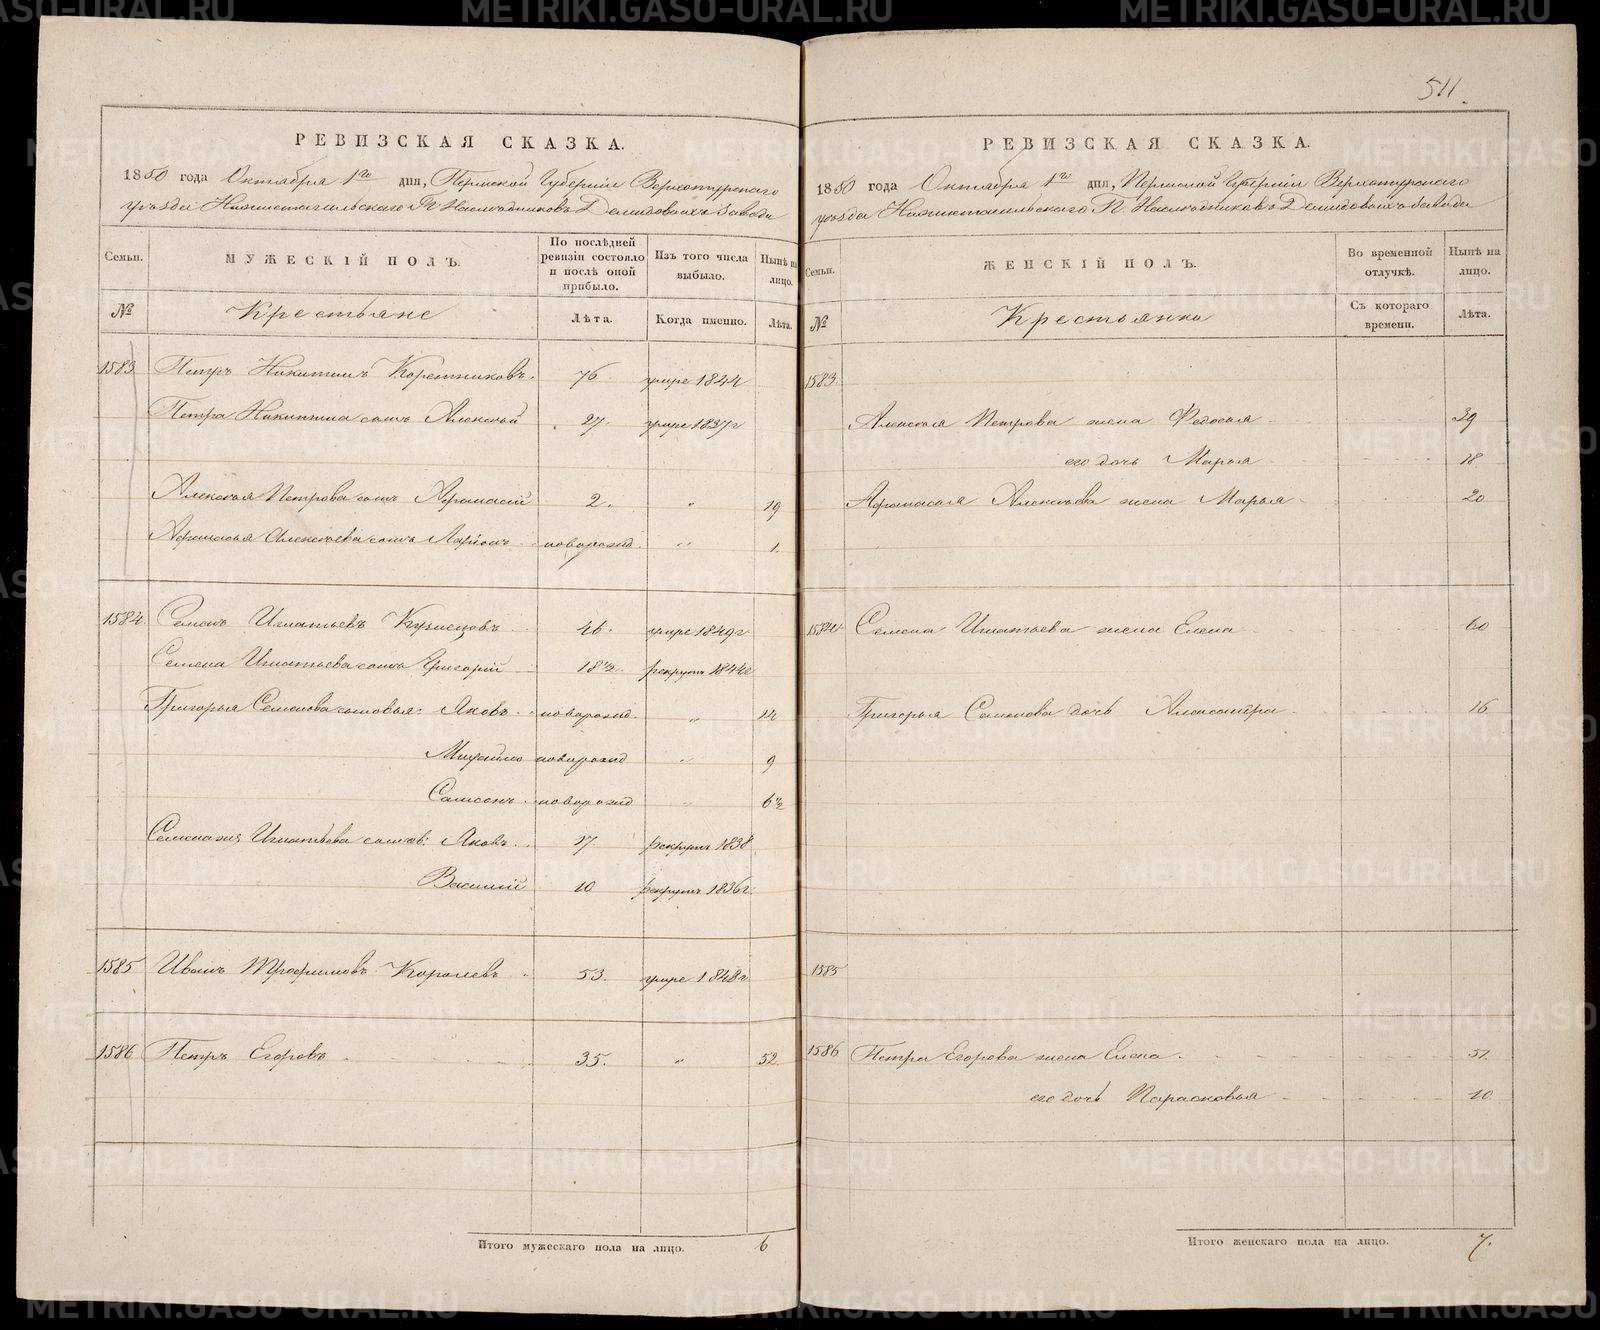 511.
РЕВИЗСКАЯ СКАЗКА.
1850 года Октября 1го дня, Пермской Губерніи Верхотурскаго
уѣзда Нижнетагильскаго П. Наслѣдниковъ Демидовыхъ завода
Семьи.
МУЖЕСКІЙ ПОЛЪ.
По послѣдней ревизіи состояло и послѣ оной прибыло.
Изъ того числа выбыло.
Нынѣ на лицо.
№
Крестьяне
Лѣта.
Когда именно.
Лѣта.
1583 Петръ Никитинъ Коретниковъ. 76 умре 1844
Петра Никитина сынъ Алексѣй 27. умре 1837г
Алексѣя Петрова сынъ Афанасій 2. " 19
Афанасья Алексѣева сынъ Ларіонъ новорожд. " 1.
1584. Семенъ Игнатьевъ Кузнецовъ 46. умре 1849г
Семена Игнатьева сынъ Григорій 18½. рекрутъ 1844г
Григорья Семенова сыновья: Яковъ новорожд. " 14
Михайло новорожд " 9
Самсонъ новорожд " 6½
Семена же Игнатьева сынов: Яковъ 17 рекрутъ 1838
Василій 10 рекрутъ 1836г.
1585 Иванъ Трофимовъ Королевъ 53. умре 1848г
1586 Петръ Егоровъ 35. " 52.
Итого мужескаго пола на лицо. 6
РЕВИЗСКАЯ СКАЗКА.
1850 года Октября 1го дня, Пермской Губерніи Верхотурскаго
уѣзда Нижнетагильскаго П. Наслѣдниковъ Демидовыхъ завода
Семьи.
ЖЕНСКІЙ ПОЛЪ.
Во временной отлучкѣ.
Нынѣ на лицо.
№
Крестьянки
Съ котораго времени.
Лѣта.
1583.
Алексѣя Петрова жена Федосья 39
его дочь Марья 18
Афанасья Алексѣева жена Марья 20
1584 Семена Игнатьева жена Елена 60
Григорья Семенова дочь Александра 16
1585
1586 Петра Егорова жена Елена. 51.
его дочь Парасковья 10
Итого женскаго пола на лицо. 7.
METRIKI.GASO-URAL.RU